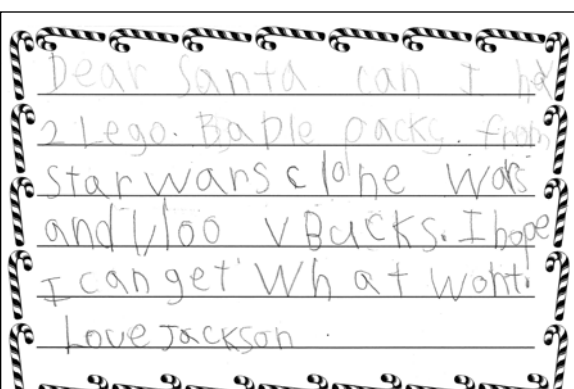 Dear Santa can I hav
2 Lego. Baple packs. from
star wars clone wars
and 1,100 V Bucks. I hope
I can get What wont.
Love Jackson.